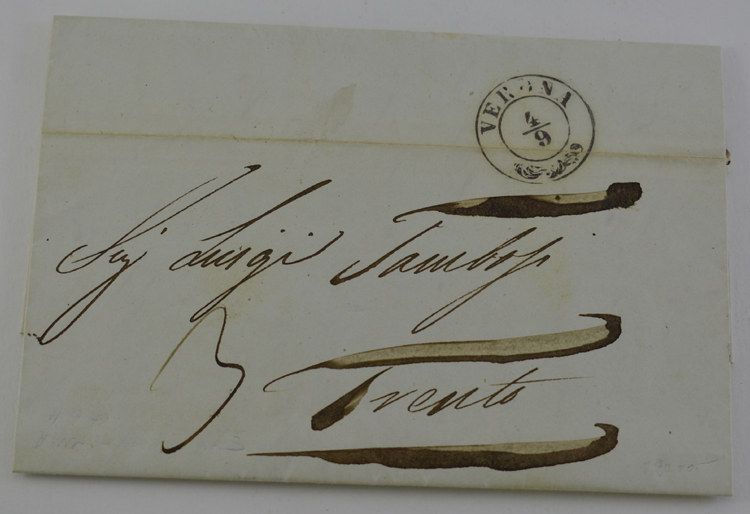 VERONA
4/9
Sig Luigi Tambosi
3
Trento